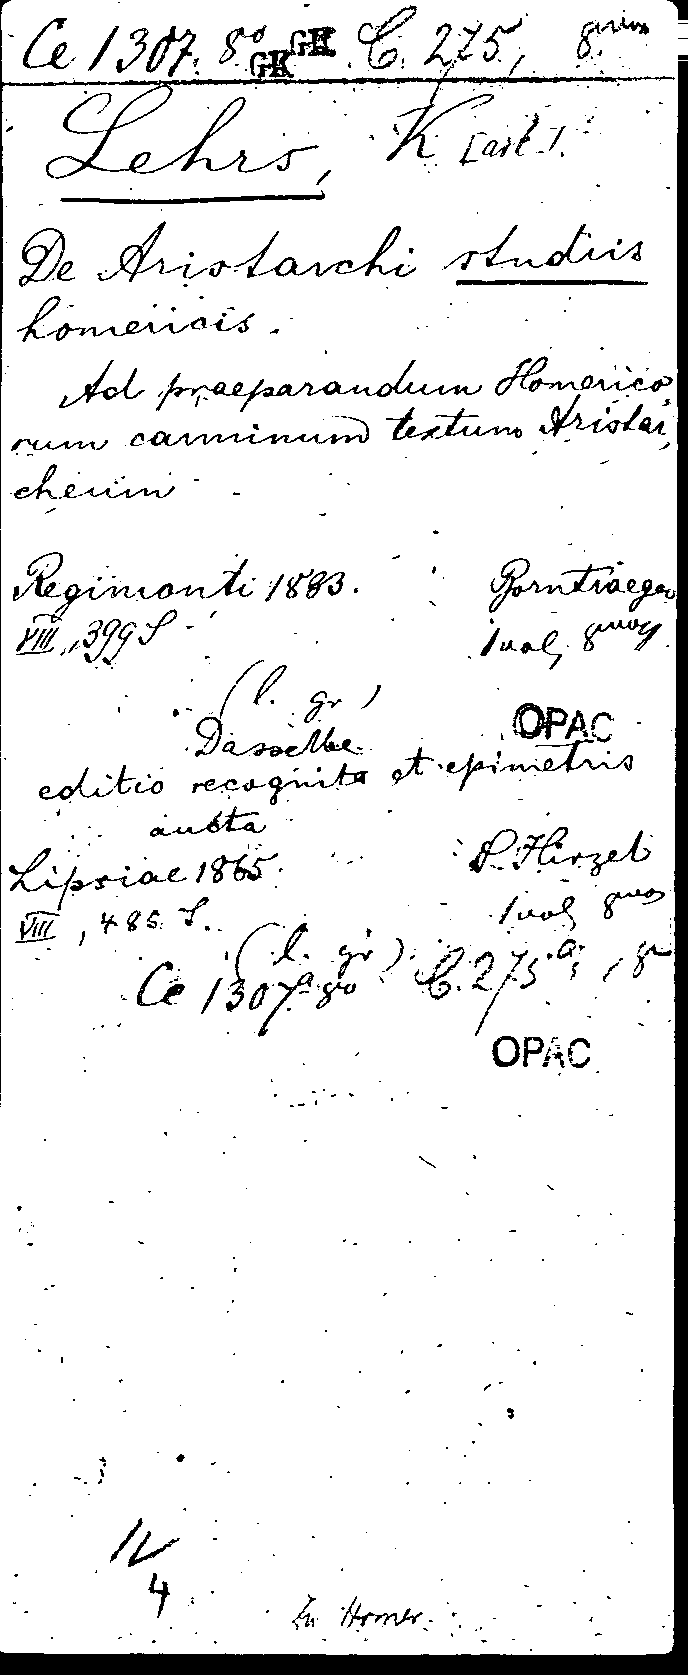 Ce 1307. 8° GK GK C. 275, 8
Lehrs, K [arl].
De Aristarchi studiis
homericis.
Ad praeparandum Homerico-
rum carminum textum Aristar-
cheum
Regimonti 1883. Borntraeger
VIII, 399 S 1 vol, 8
(l. gr)
OPAC
Dasselbe
editio recognita et epimetris
aucta
Lipsiae 1865 S. Hirzel
VIII, 485 S. 1 vol, 8
(l. gr)
Ce 1307a 8° C. 275 a, 8
OPAC
IV
4
Zu Homer.